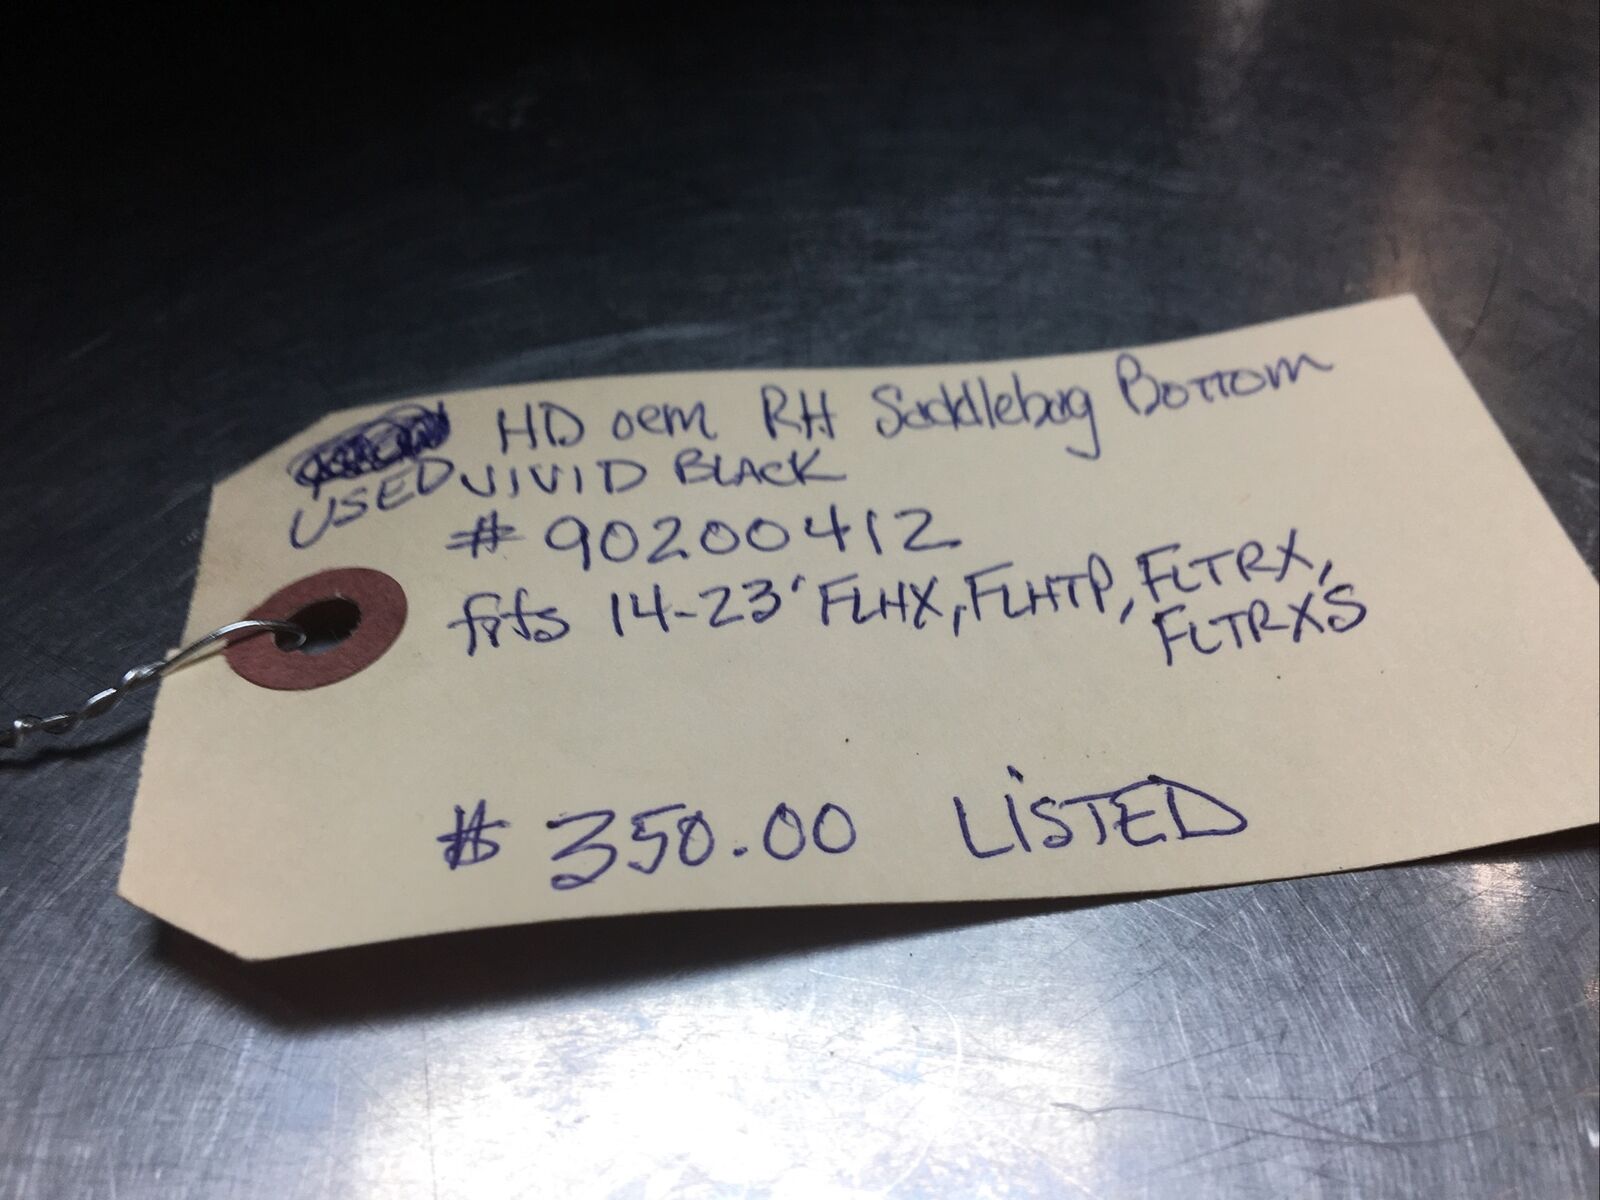 HD oem RH Saddlebag Bottom
USED VIVID BLACK
# 90200412
fits 14-23' FLHX, FLHTP, FLTRX,
FLTRXS
$ 350.00 LiSTED